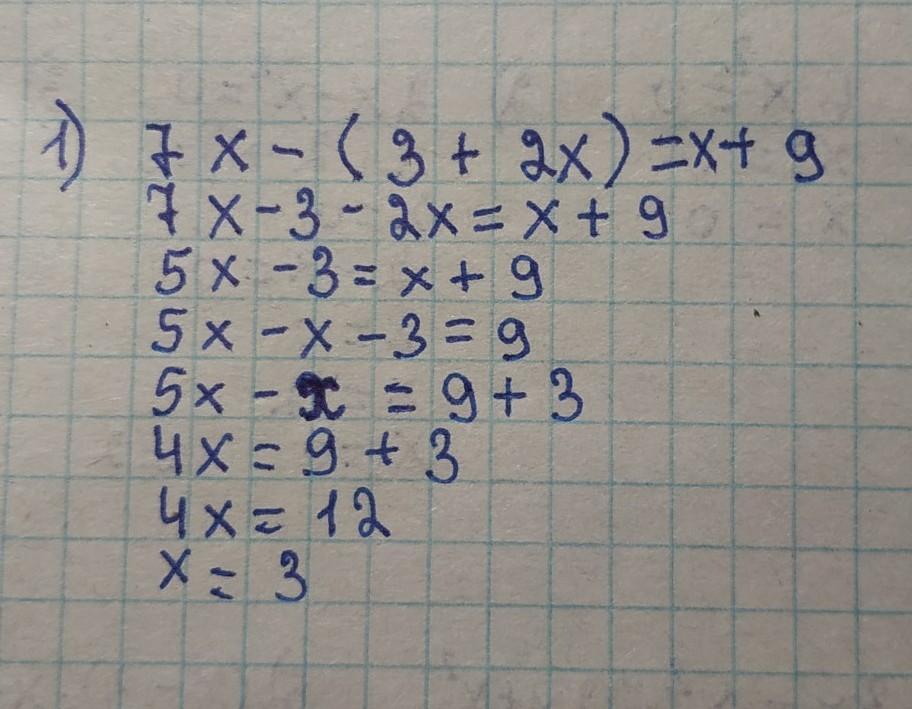 1) 7x - (3 + 2x) = x + 9
7x - 3 - 2x = x + 9
5x - 3 = x + 9
5x - x - 3 = 9
5x - x = 9 + 3
4x = 9 + 3
4x = 12
x = 3